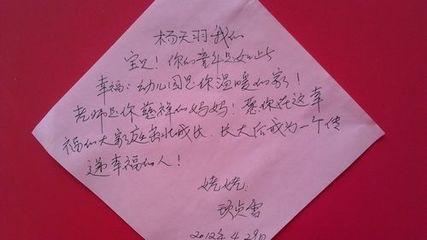 杨天羽我的
宝贝！你的童年是如此
幸福：幼儿园是你温暖的家！
老师是你慈祥的妈妈！愿你在这幸
福的大家庭茁壮成长，长大后成为一个传
递幸福的人！
姥姥
2012年4.29日